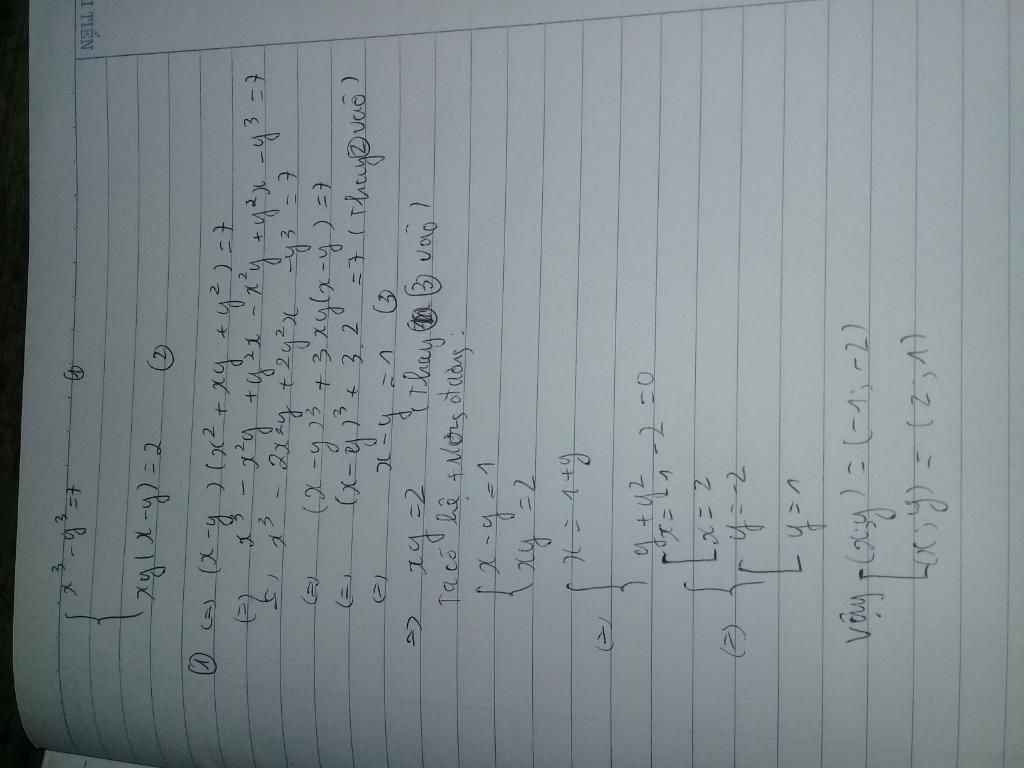 I TIẾN
{ x³ - y³ = 7 (1)
xy(x - y) = 2 (2)
(1) (=) (x - y)(x² + xy + y²) = 7
(=) x³ - x²y + y²x - x²y + y²x - y³ = 7
(=) x³ - 2x²y + 2y²x - y³ = 7
(=) (x - y)³ + 3xy(x - y) = 7
(=) (x - y)³ + 3.2 = 7 (Thay (2) vào)
(=) x - y = 1 (3)
=) xy = 2 (Thay (3) vào)
Ta có hệ tương đương:
{ x - y = 1
xy = 2
(=) { x = 1 + y
y + y² - 2 = 0
(=) { [ x = -1
[ x = 2
{ [ y = -2
[ y = 1
Vậy [ (x; y) = (-1; -2)
[ (x; y) = (2; 1)